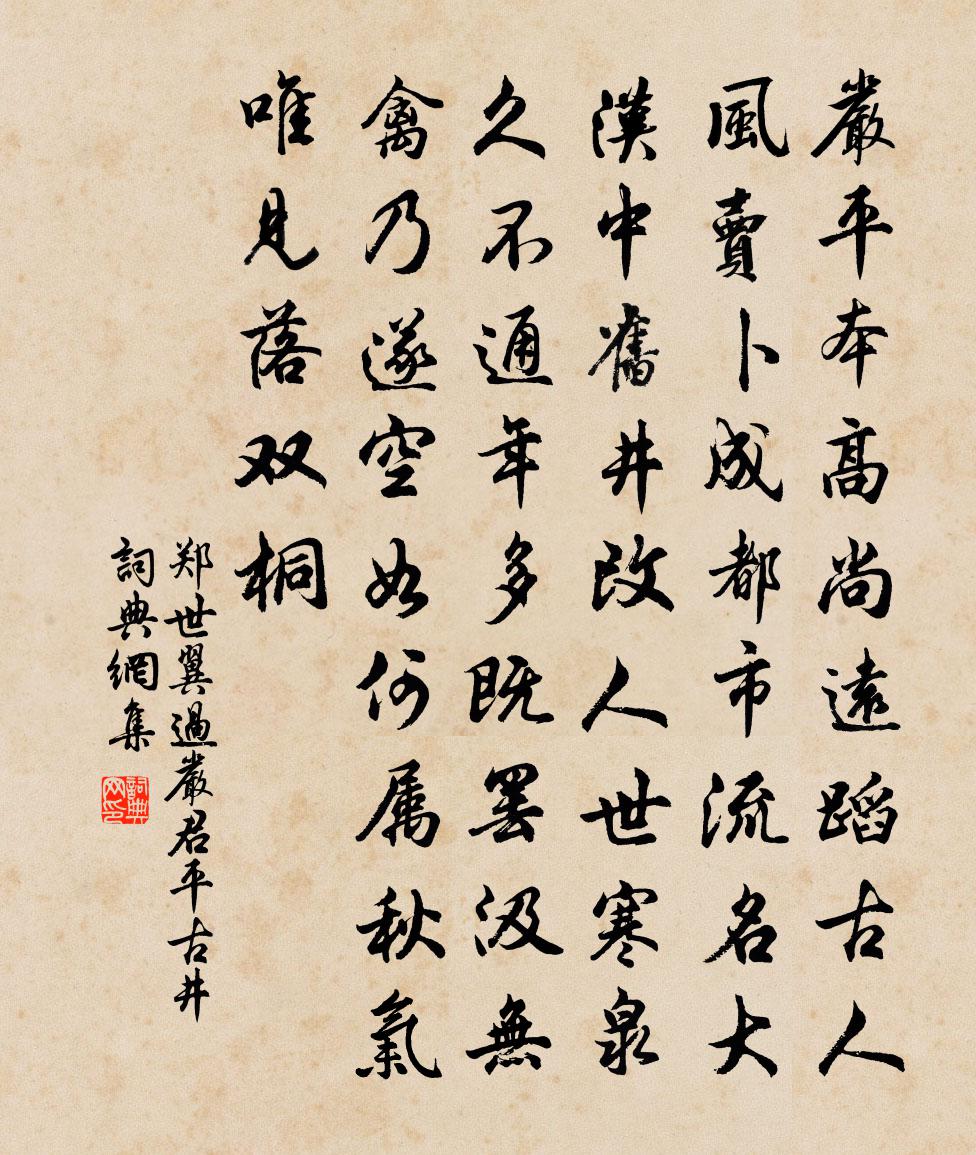 嚴平本高尚遠蹈古人
風賣卜成都市流名大
漢中舊井改人世寒泉
久不通年多既罷汲無
禽乃遂空如何属秋氣
唯見落双桐
郑世翼過嚴君平古井
詞典網集
詞典网印